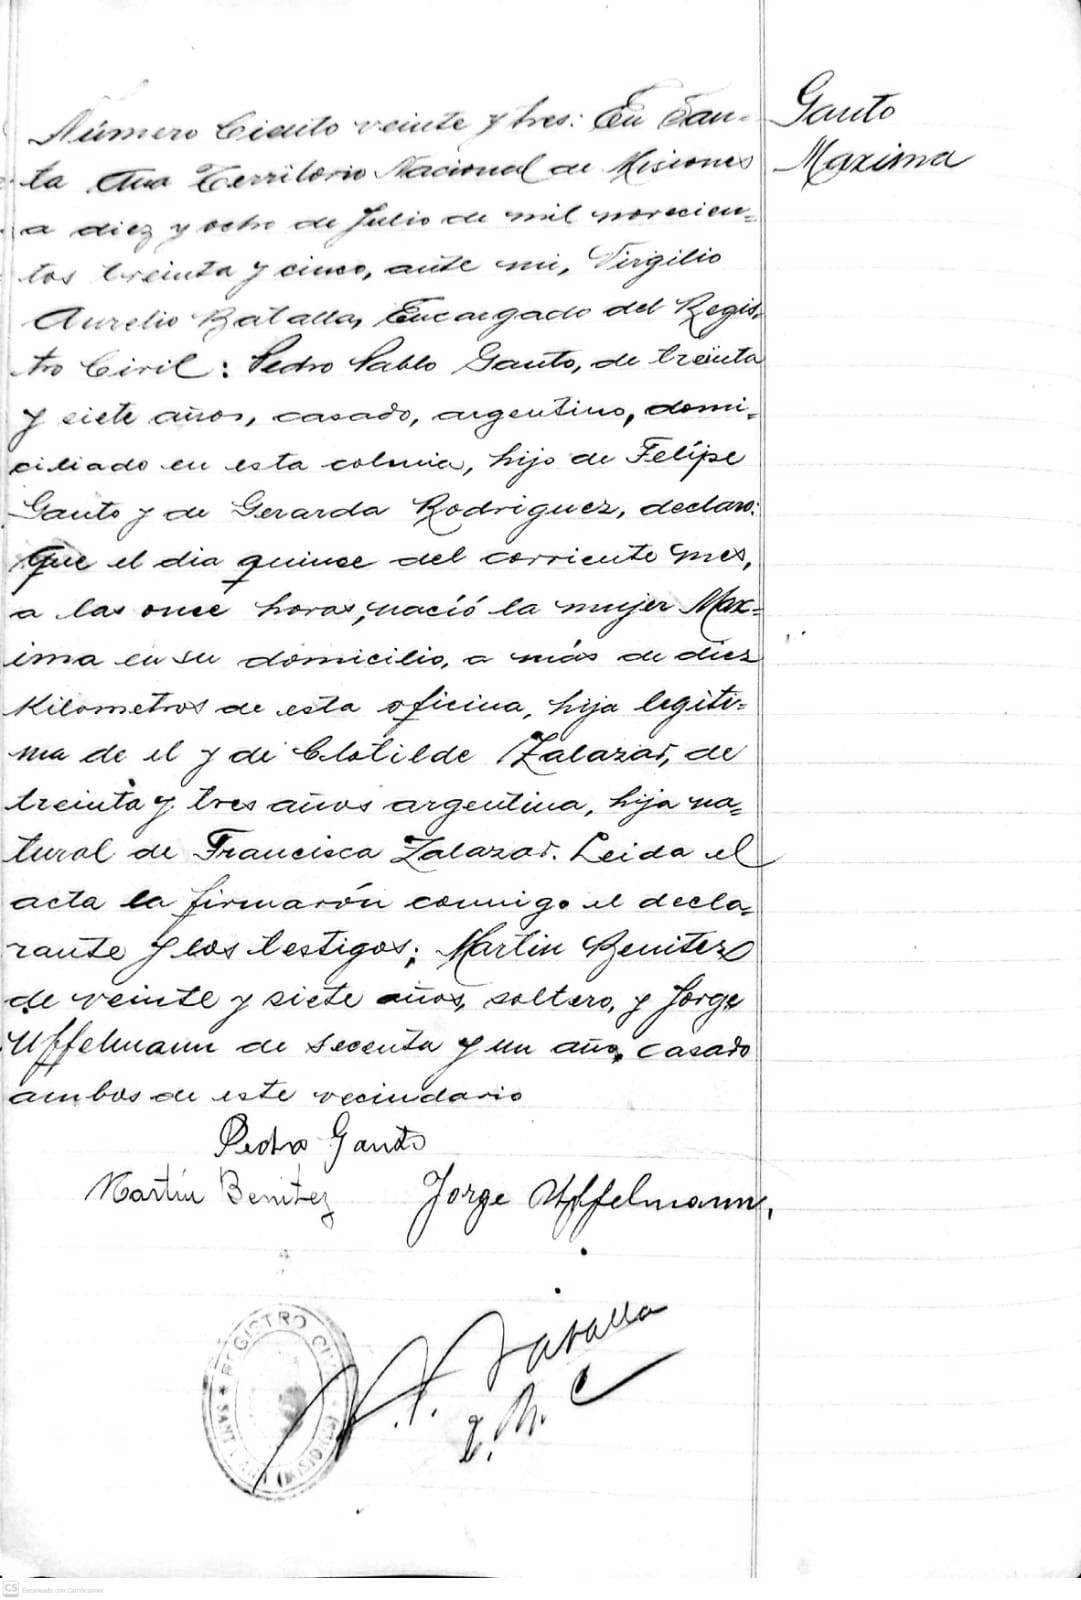 Gauto
Maxima
Número Ciento veinte y tres: En San-
ta Ana Territorio Nacional de Misiones
a diez y ocho de Julio de mil novecien-
tos treinta y cinco, ante mi, Virgilio
Aurelio Batalla, Encargado del Regis-
tro Civil: Pedro Pablo Gauto, de treinta
y siete años, casado, argentino, domi-
ciliado en esta colonia, hijo de Felípe
Gauto y de Gerarda Rodriguez, declaro:
Que el dia quince del corriente mes,
a las once horas, nació la mujer Max-
ima en su domicilio, a más de diez
Kilometros de esta oficina, hija legiti-
ma de el y de Clotilde Zalazar, de
treinta y tres años argentina, hija na-
tural de Francisca Zalazar. Leida el
acta la firmarón conmigo el decla-
rante y los testigos; Martin Benitez
de veinte y siete años, soltero, y Jorge
Uffelmann de secenta y un año, casado
ambos de este vecindario
Pedro Gauto
Martín Benítez Jorge Uffelmann.
REGISTRO CIVIL
SANTA ANA (MISIONES)
CS Escaneado con CamScanner